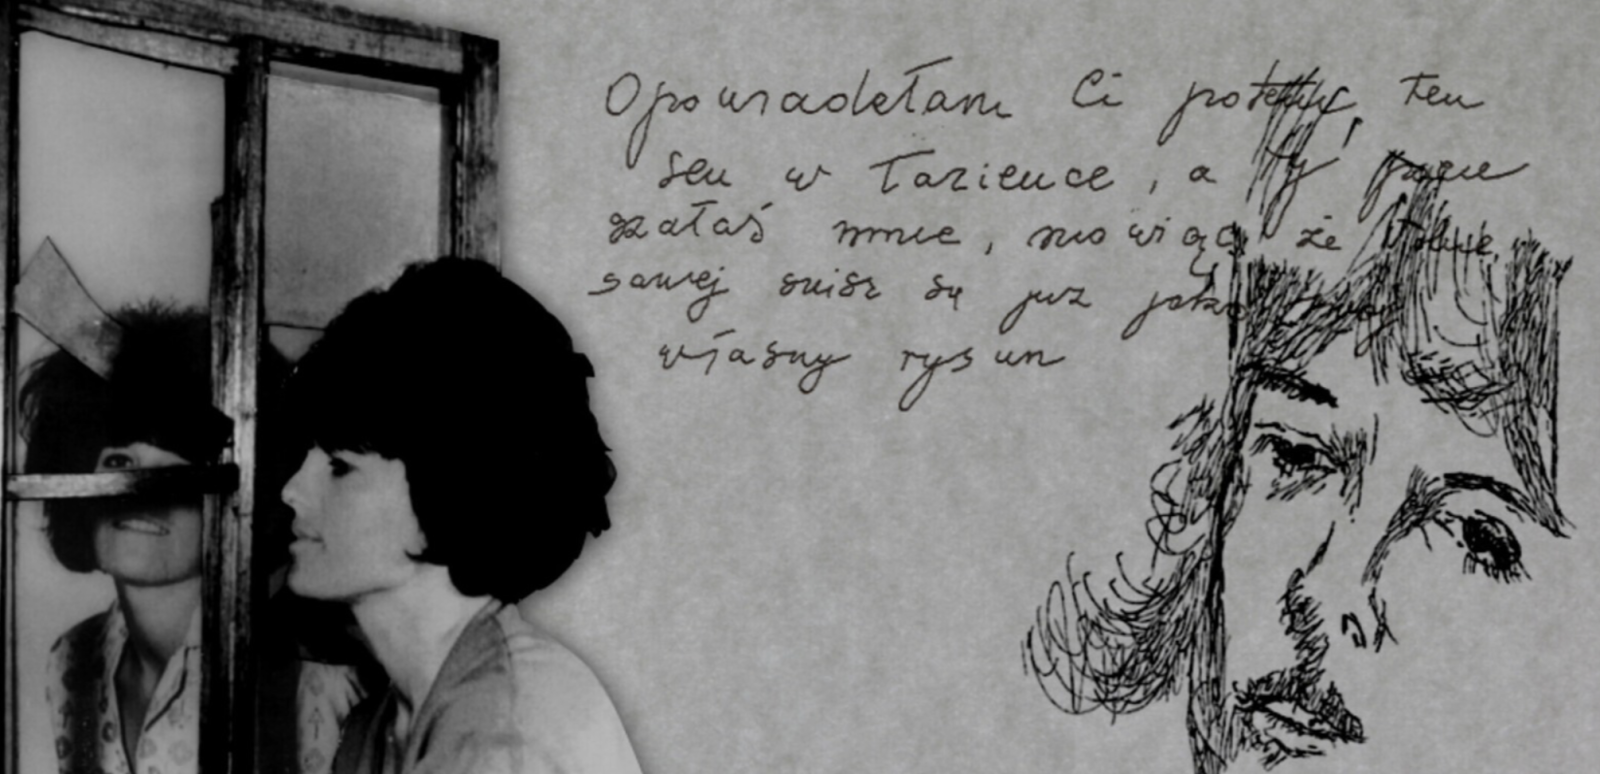 Opowiadałam Ci potem ten
sen w łazience, a Ty prze
gnałaś mnie, mówiąc, że
samej śnisz się już jako twój
własny rysun